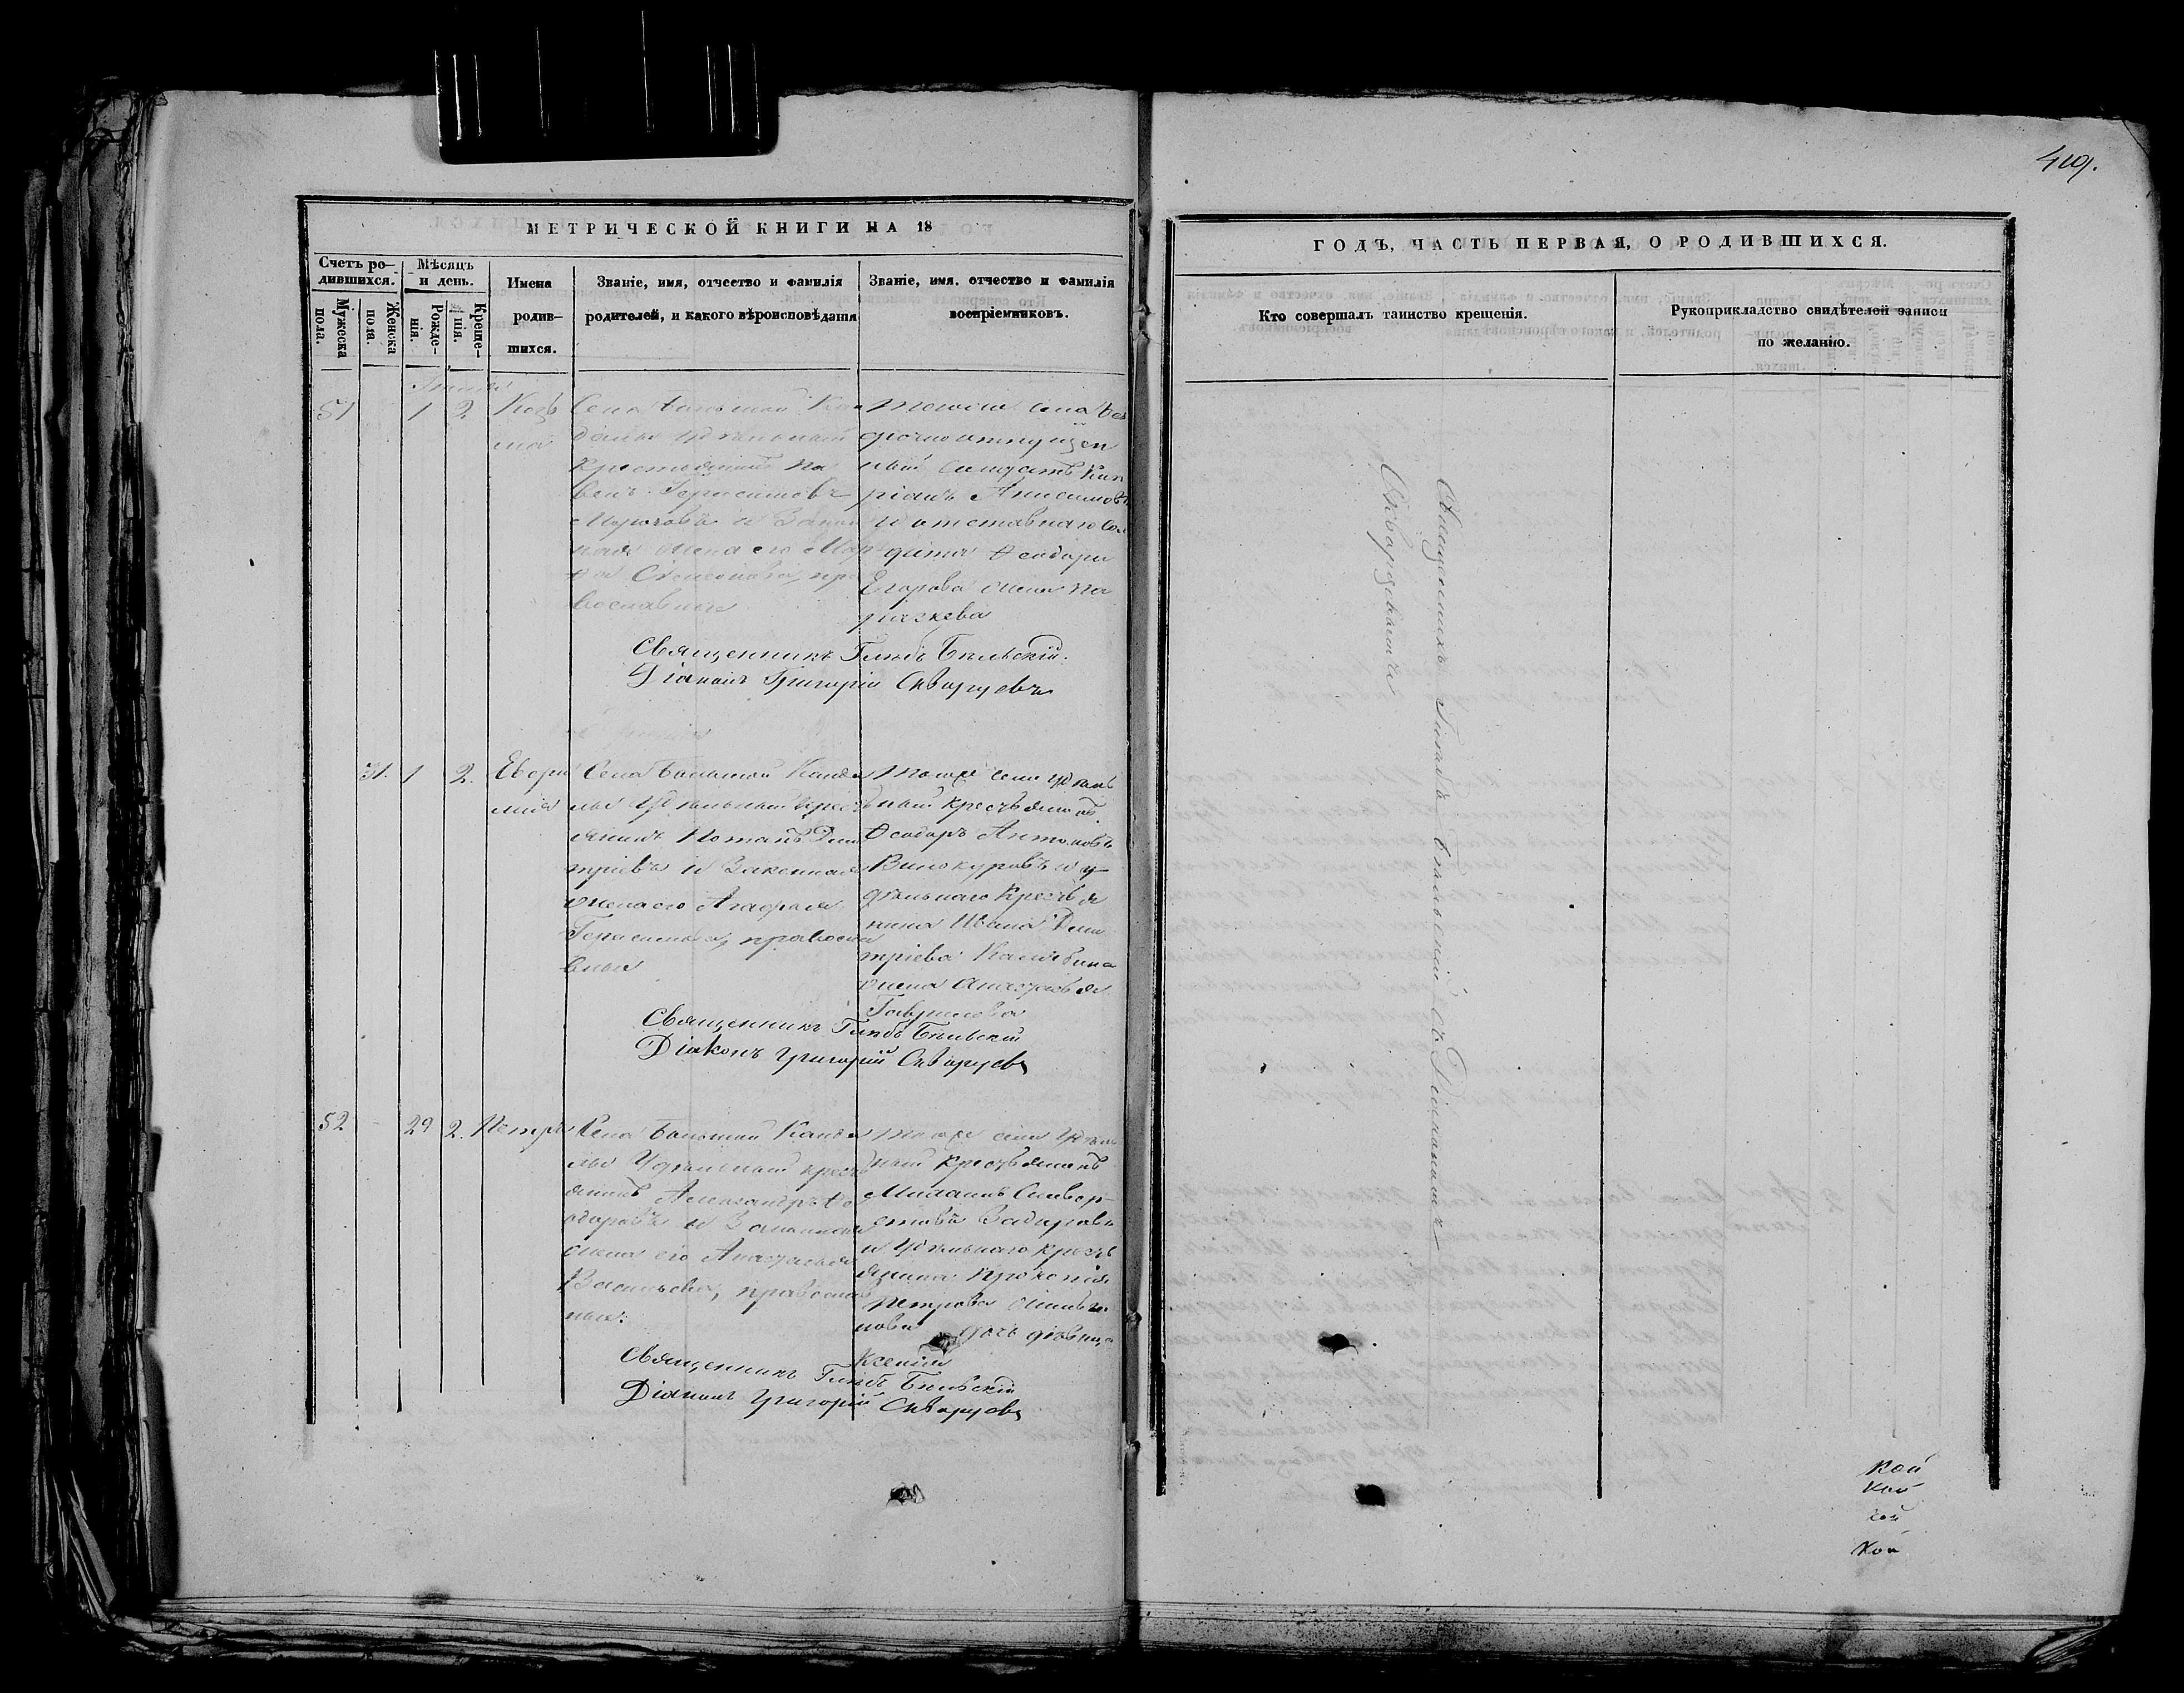 419.
МЕТРИЧЕСКОЙ КНИГИ НА 18
Счетъ ро-
дившихся.
Мужеска
пола.
Женска
пола.
Мѣсяцъ
и день.
Рожде-
нія.
Креще-
нія.
Имена
родив-
шихся.
Званіе, имя, отчество и фамилія
родителей, и какого вѣроисповѣданія
Званіе, имя, отчество и фамилія
воспріемниковъ.
51
1
2
Козь
ма
Села Большой Кан
далы Удѣльный
Крестьянинъ Па
велъ Герасимовъ
и Закон
ная жена его Мар
ѳа Семенова, пра
вославные
Тогоже села Без
срочноотпущен
ный Солдатъ Кип
ріанъ Анисимовъ
и отставнаго Сол
дата Ѳеодора
Егорова жена Па
раскева
Священникъ Глѣбъ Бѣльскій.
Діаконъ Григорій Скворцовъ
31.
1
2.
Евфи
мія
Села Большой Канда
лы Удѣльный крест
янинъ Потапъ Дми
тріевъ и Законная
жена его Агафья
Герасимова, правосла
вные
Тогоже села Удѣль
ный крестьянинъ
Ѳеодоръ Антоновъ
Винокуровъ и у-
дѣльнаго Крестья
нина Ивана Дми
тріева
жена Анастасья
Гаврилова
Священникъ Глѣбъ Бѣльскій
Діаконъ Григорій Скворцовъ
52
29
2.
Петръ
Села Большой Канда
лы Удѣльный крест
янинъ Александръ Ѳе
одоровъ и Законная
жена его Анастасья
Васильева, православ
ные.
Тогоже села Удѣль
ный крестьянинъ
и Удѣльнаго крест
янина Прокопія
Петрова
дочь дѣвица
Ксенія
Священникъ Глѣбъ Бѣльскій
Діаконъ Григорій Скворцовъ
ГОДЪ, ЧАСТЬ ПЕРВАЯ, О РОДИВШИХСЯ.
Кто совершалъ таинство крещенія.
Рукоприкладство свидѣтелей записи
по желанію.
Священникъ Глѣбъ Бѣльскій съ Діакономъ
Скворцовымъ
Кой
Кой
кой
Кой